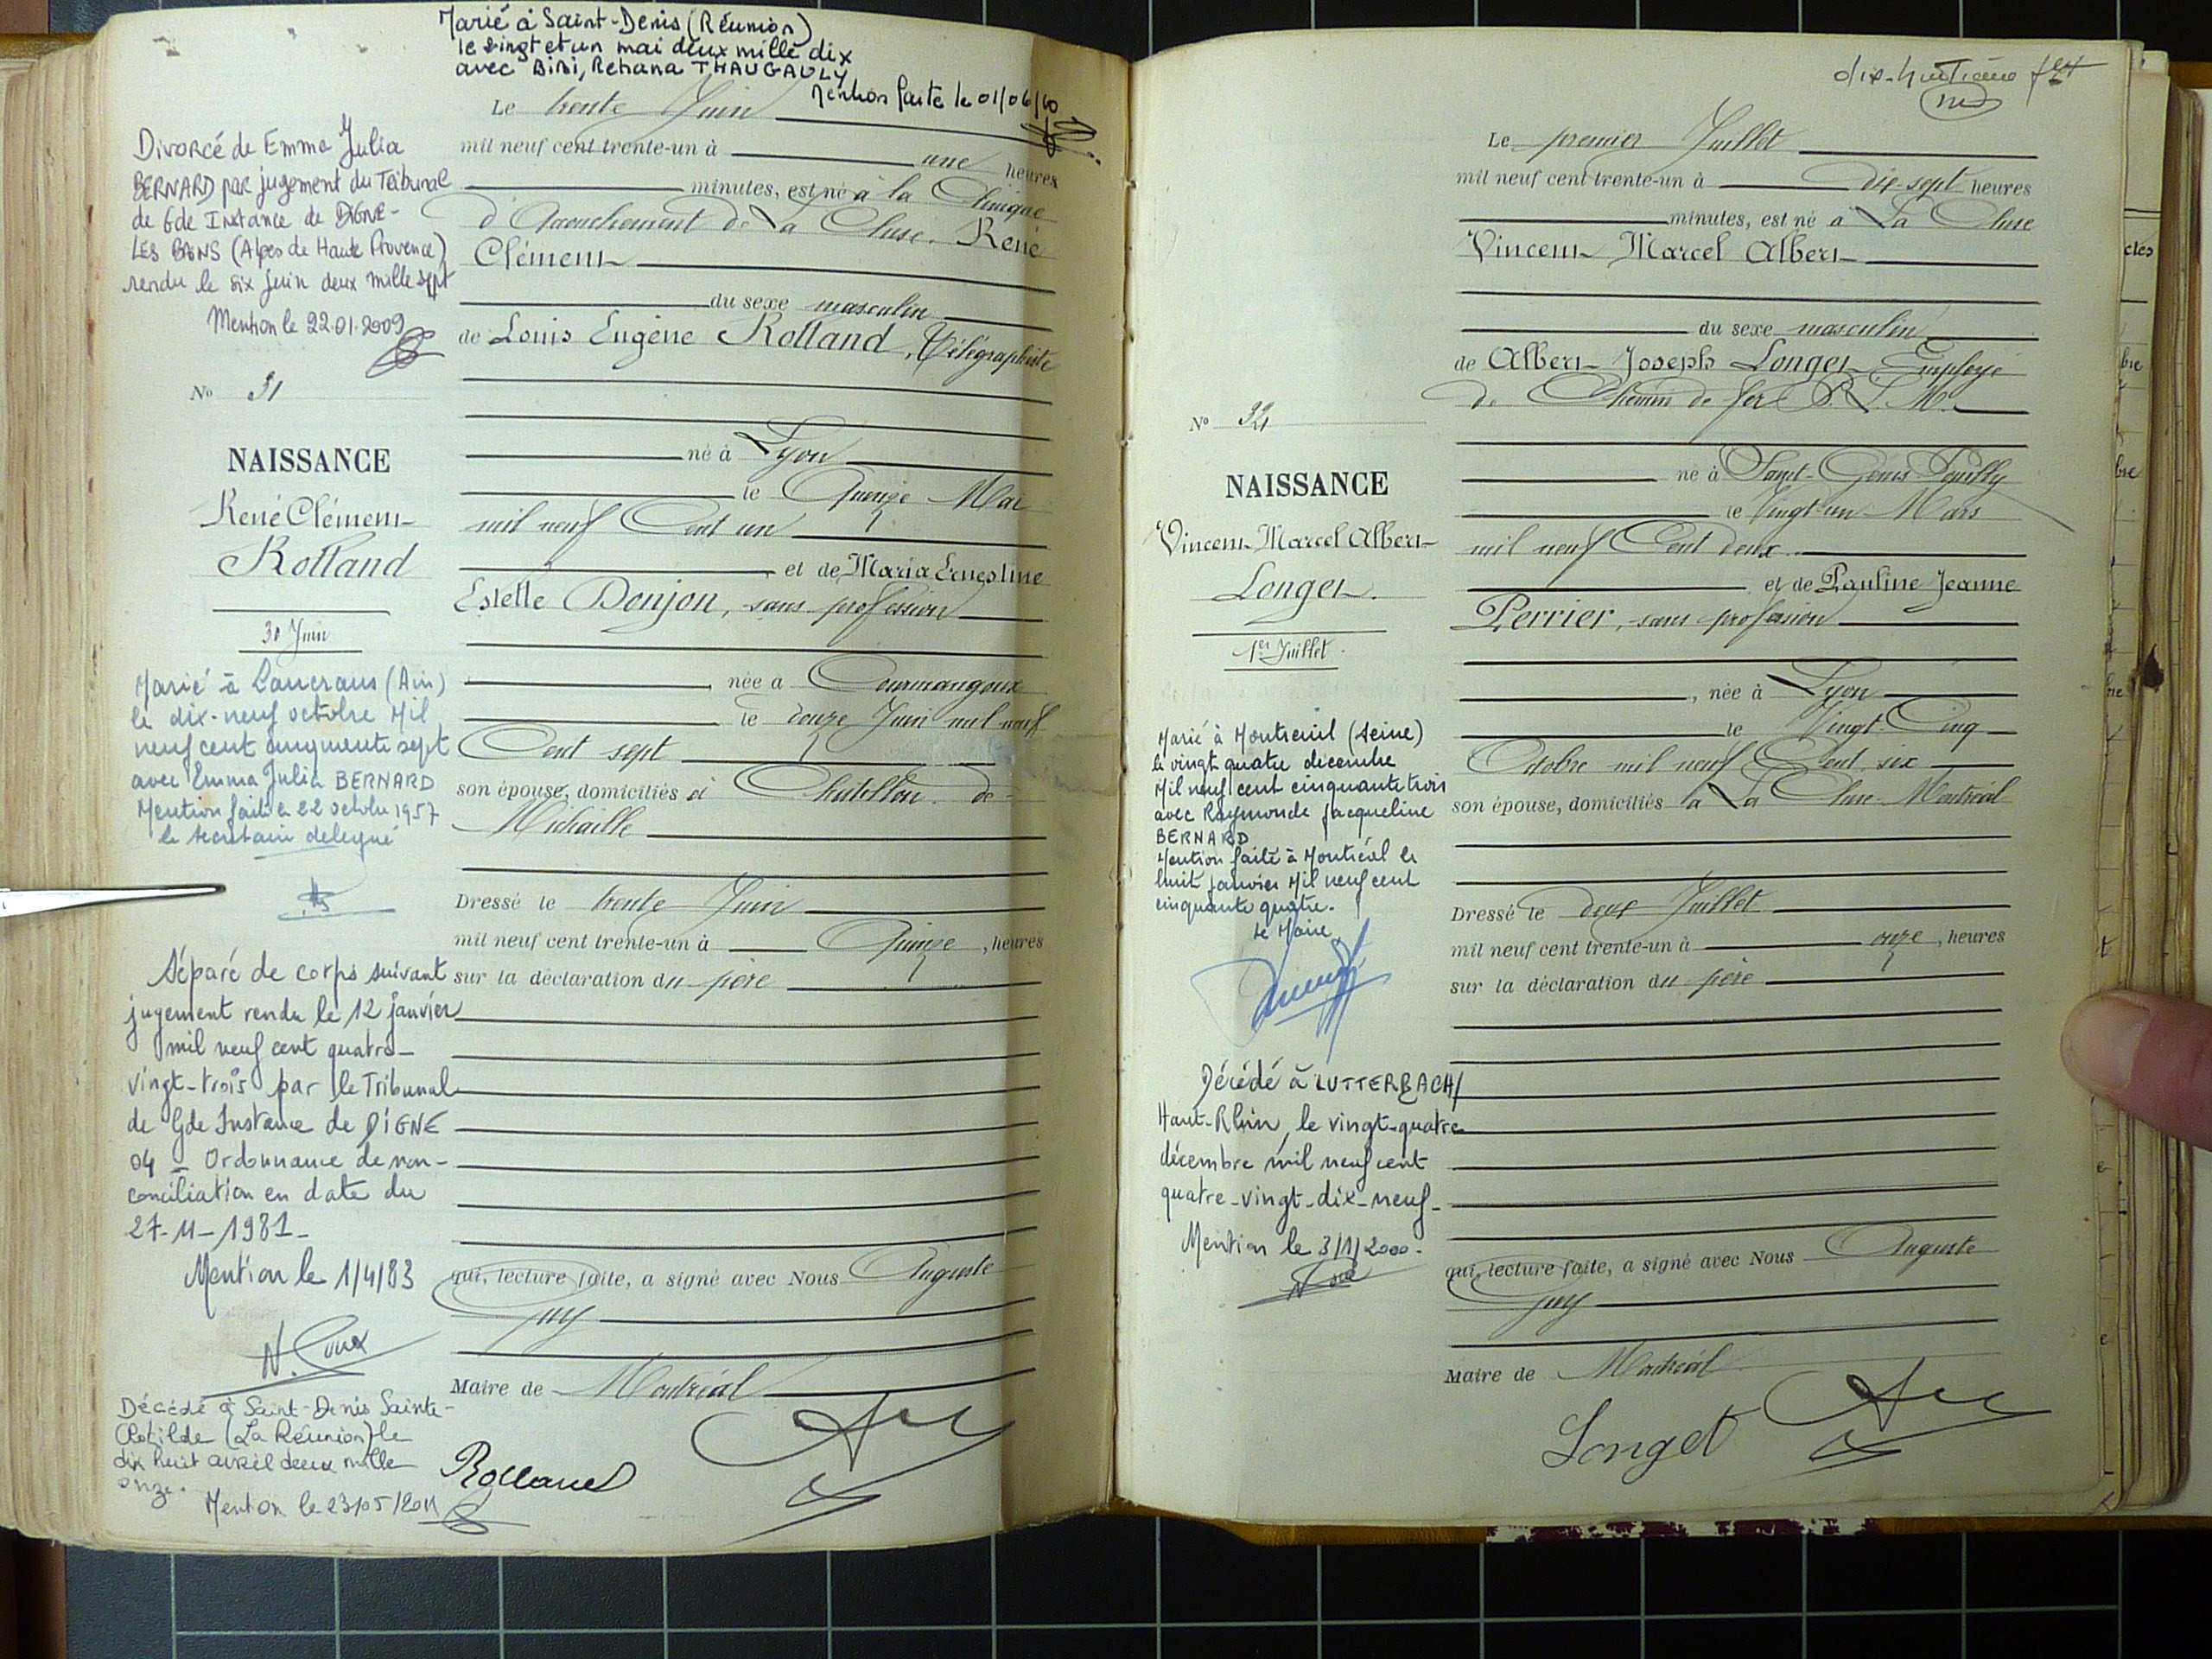 Marié à Saint-Denis (Réunion)
le vingt et un mai deux mille dix
avec BIBI, Rehana THAUGAULY
Mention faite le 01/06/10
Divorcé de Emma Julia
BERNARD par jugement du Tribunal
de Gde Instance de DIGNE-
LES BAINS (Alpes de Haute Provence)
rendu le six juin deux mille sept
Mention le 22.01.2009
No 31
NAISSANCE
René Clément
Rolland
30 Juin
Marié à Lancrans (Ain)
le dix-neuf octobre Mil
neuf cent cinquante sept
avec Emma Julia BERNARD
Mention faite le 22 octobre 1957
le secrétaire délégué
Séparé de corps suivant
jugement rendu le 12 janvier
mil neuf cent quatre-
vingt-trois par le Tribunal
de Gde Instance de DIGNE
04 - Ordonnance de non-
conciliation en date du
27-11-1981-
Mention le 1/4/83
N. Roux
Décédé à Saint-Denis Sainte-
Clotilde (La Réunion) le
dix huit avril deux mille
onze.
Mention le 23/05/2011
Le trente Juin
mil neuf cent trente-un à une heures
minutes, est né à la Clinique
d'Accouchement de La Cluse. René
Clément
du sexe masculin
de Louis Eugène Rolland, Télégraphiste
né à Lyon
le Quinze Mai
mil neuf Cent un
et de Maria Ernestine
Estelle Donjon, sans profession
née à Courmangoux
le douze Juin mil neuf
Cent sept
son épouse, domiciliés à Chatillon-de-
Michaille
Dressé le trente Juin
mil neuf cent trente-un à Quinze, heures
sur la déclaration du père
qui, lecture faite, a signé avec Nous Auguste
Guy
Maire de Montréal
Rolland
dix-huitième fet
Le premier Juillet
mil neuf cent trente-un à Dix-sept heures
minutes, est né à La Cluse
Vincent Marcel Albert
du sexe masculin
de Albert Joseph Longet Employé
de Chemin de fer P.L.M.
né à Saint-Genis Pouilly
le Vingt-un Mars
mil neuf Cent deux
et de Pauline Jeanne
Perrier, sans profession
née à Lyon
le Vingt-Cinq
Octobre mil neuf Cent six
son épouse, domiciliés à La Cluse-Montréal
Dressé le deux Juillet
mil neuf cent trente-un à onze, heures
sur la déclaration du père
qui, lecture faite, a signé avec Nous Auguste
Guy
Maire de Montréal
Longet
No 32
NAISSANCE
Vincent Marcel Albert
Longet.
1er Juillet
Marié à Montreuil (Seine)
le vingt quatre décembre
Mil neuf cent cinquante trois
avec Raymonde Jacqueline
BERNARD
Mention faite à Montréal le
huit janvier Mil neuf cent
cinquante quatre.
Le Maire
Décédé à LUTTERBACH/
Haut-Rhin, le vingt-quatre
décembre mil neuf cent
quatre-vingt-dix-neuf-
Mention le 3/1/2000.